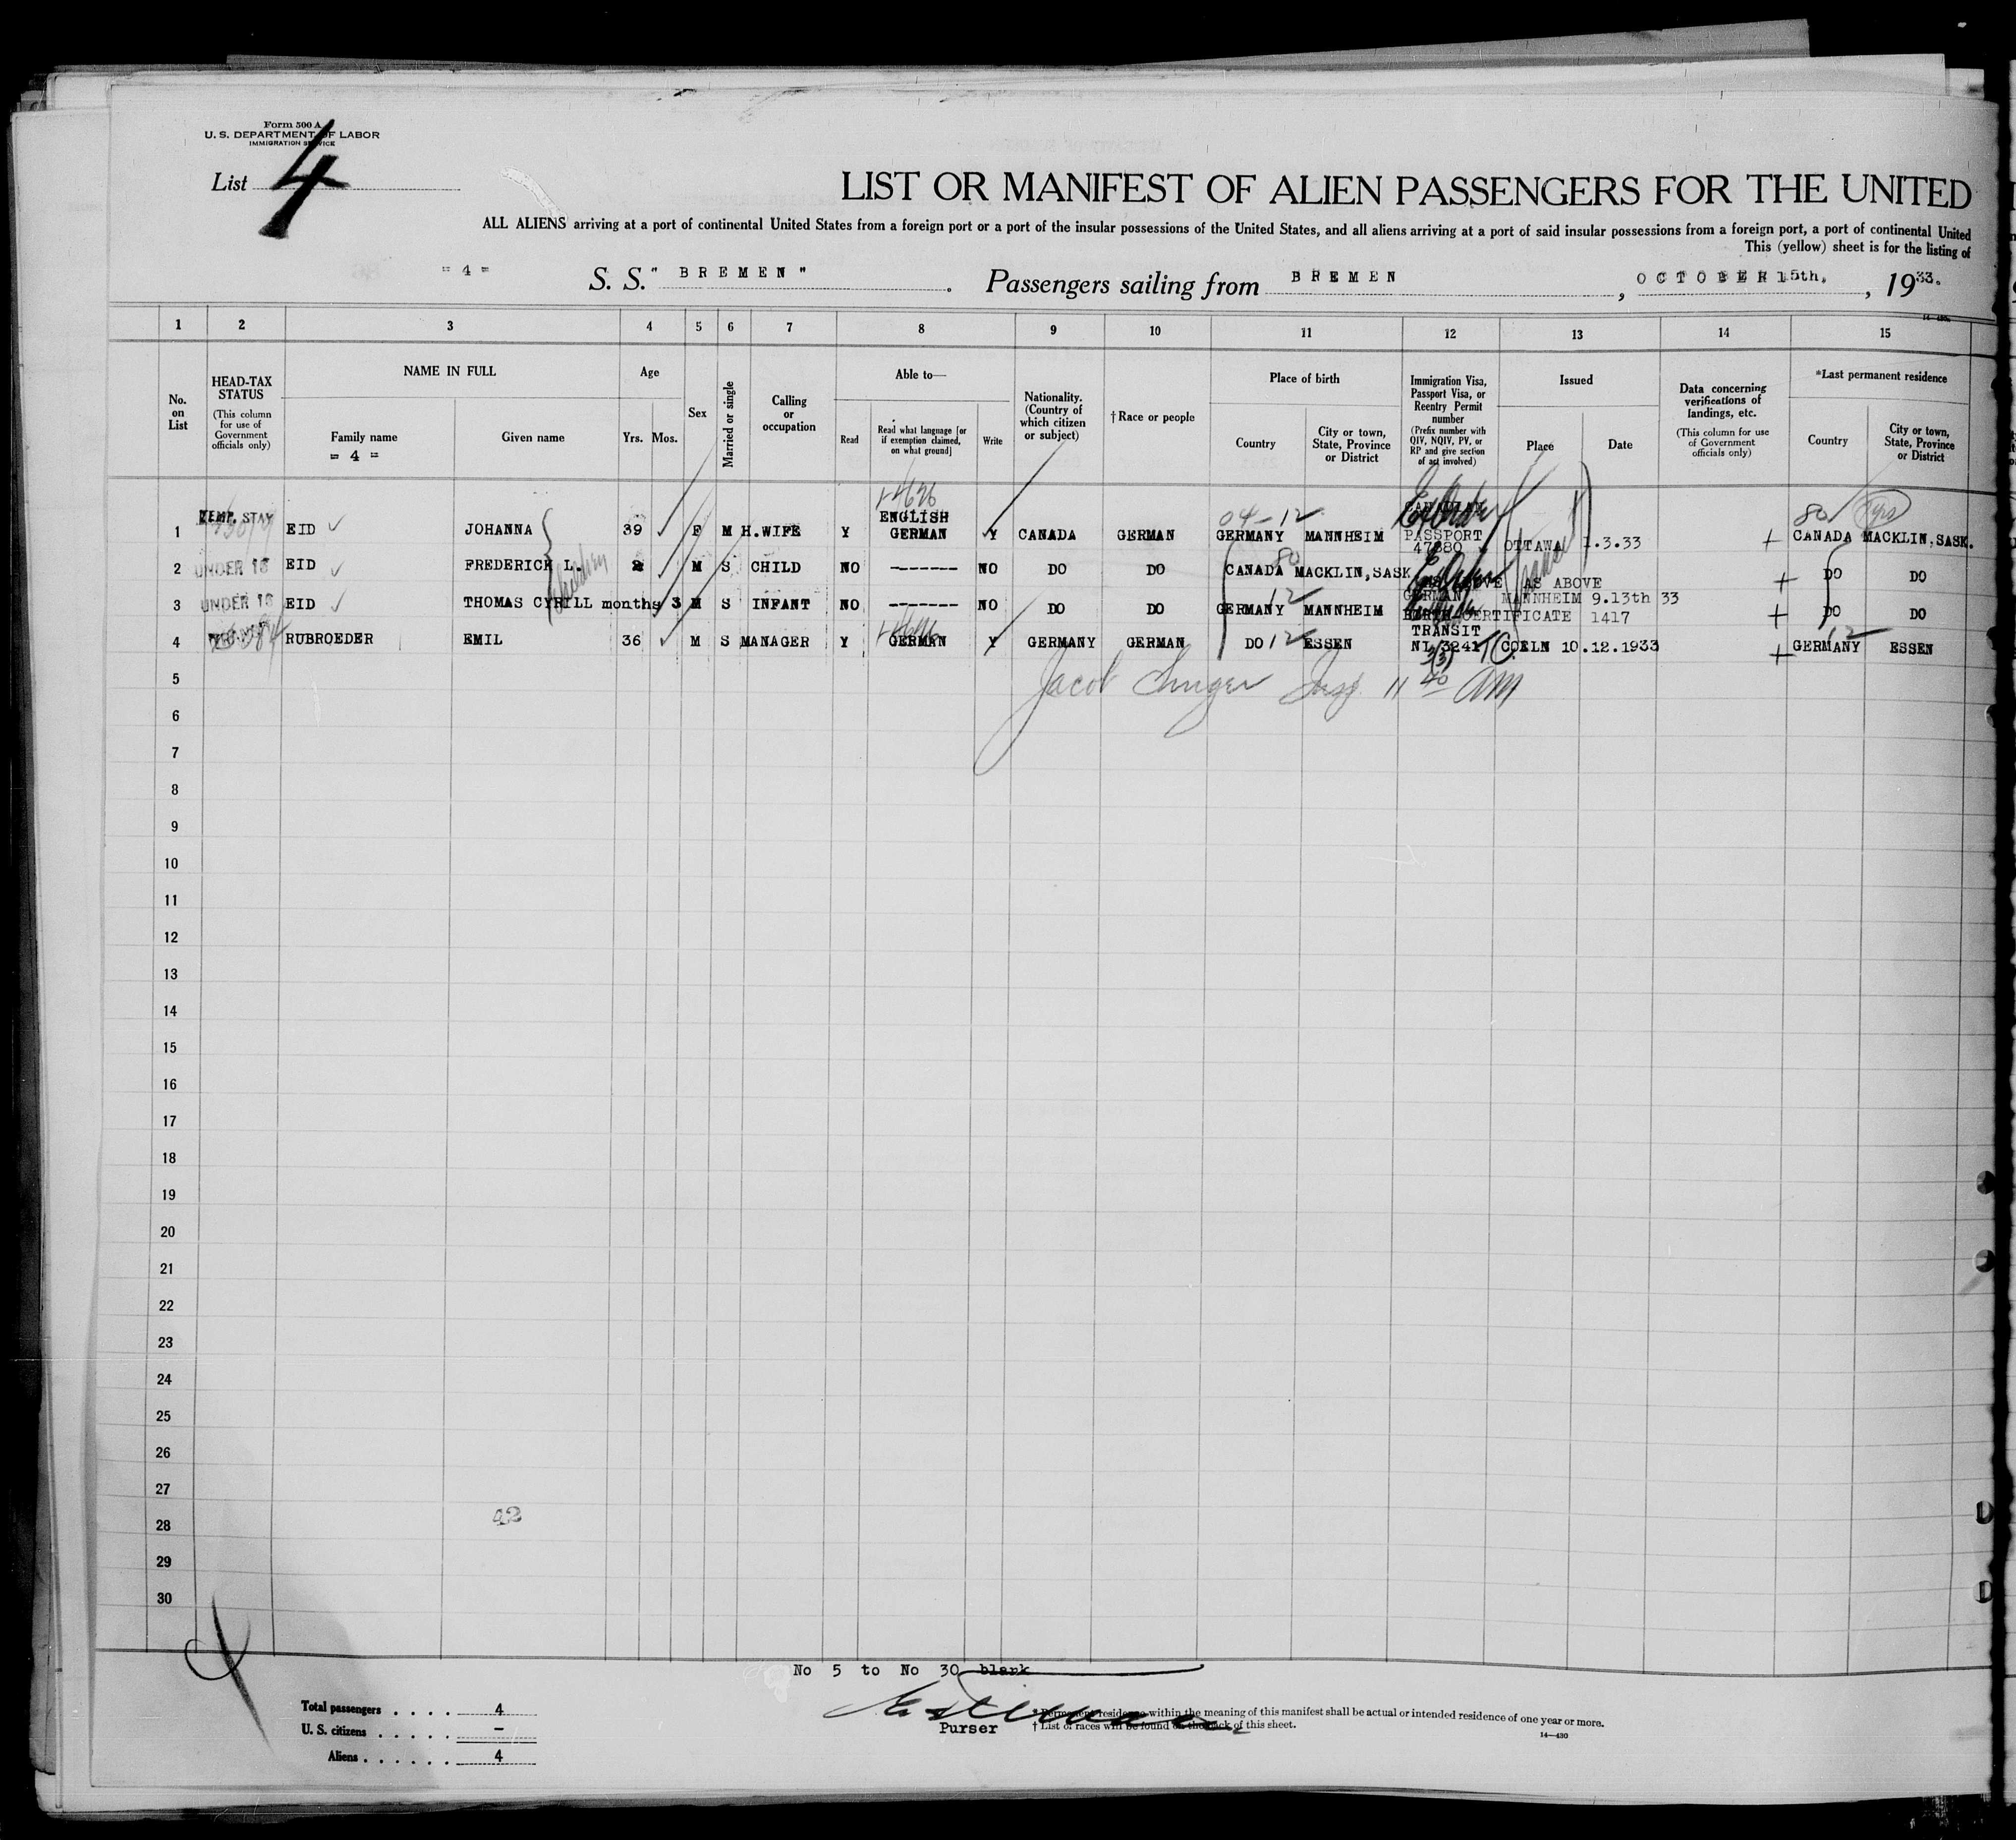 Form 500 A
U. S. DEPARTMENT OF LABOR
IMMIGRATION SERVICE
List 4
LIST OR MANIFEST OF ALIEN PASSENGERS FOR THE UNITED
ALL ALIENS arriving at a port of continental United States from a foreign port or a port of the insular possessions of the United States, and all aliens arriving at a port of said insular possessions from a foreign port, a port of continental United
This (yellow) sheet is for the listing of
= 4 = S. S. "BREMEN". Passengers sailing from BREMEN, OCTOBER 15th, 1933.
14—430
1 2 3 4 5 6 7 8 9 10 11 12 13 14 15
No. on List
HEAD-TAX STATUS (This column for use of Government officials only)
NAME IN FULL
Family name
= 4 =
Given name
Age
Yrs. Mos.
Sex
Married or single
Calling or occupation
Able to—
Read
Read what language [or if exemption claimed, on what ground]
Write
Nationality. (Country of which citizen or subject)
†Race or people
Place of birth
Country
City or town, State, Province or District
Immigration Visa, Passport Visa, or Reentry Permit number (Prefix number with QIV, NQIV, PV, or RP and give section of act involved)
Issued
Place
Date
Data concerning verifications of landings, etc. (This column for use of Government officials only)
*Last permanent residence
Country
City or town, State, Province or District
1 TEMP. STAY EID JOHANNA 39 F M H.WIFE Y ENGLISH GERMAN Y CANADA GERMAN 04-12 GERMANY MANNHEIM CANADIAN PASSPORT 47380 OTTAWA 1.3.33 + 80 CANADA MACKLIN,SASK.
2 UNDER 16 EID FREDERICK L. 2 M S CHILD NO ------- NO DO DO 80 CANADA MACKLIN,SASK AS ABOVE AS ABOVE + DO DO
3 UNDER 16 EID THOMAS CYRILL months 3 M S INFANT NO ------- NO DO DO 12 GERMANY MANNHEIM GERMAN BIRTH CERTIFICATE 1417 MANNHEIM 9.13th 33 + DO DO
4 RUBROEDER EMIL 36 M S MANAGER Y GERMAN Y GERMANY GERMAN DO 12 ESSEN TRANSIT NL 3241 COELN 10.12.1933 + 12 GERMANY ESSEN
5 Jacob 11 40 am
6
7
8
9
10
11
12
13
14
15
16
17
18
19
20
21
22
23
24
25
26
27
28
29
30
No 5 to No 30 blank
Total passengers . . . . 4
U. S. citizens . . . . . –
Aliens . . . . . . 4
Purser
* Permanent residence within the meaning of this manifest shall be actual or intended residence of one year or more.
† List of races will be found on the back of this sheet.
14—430